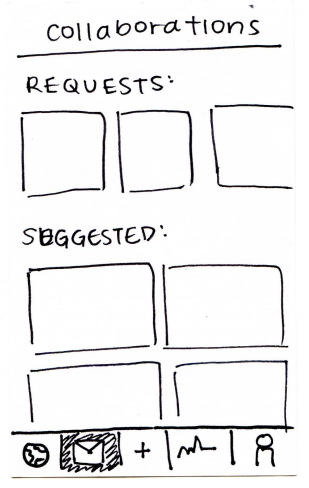 Collaborations
REQUESTS:
SUGGESTED:
+